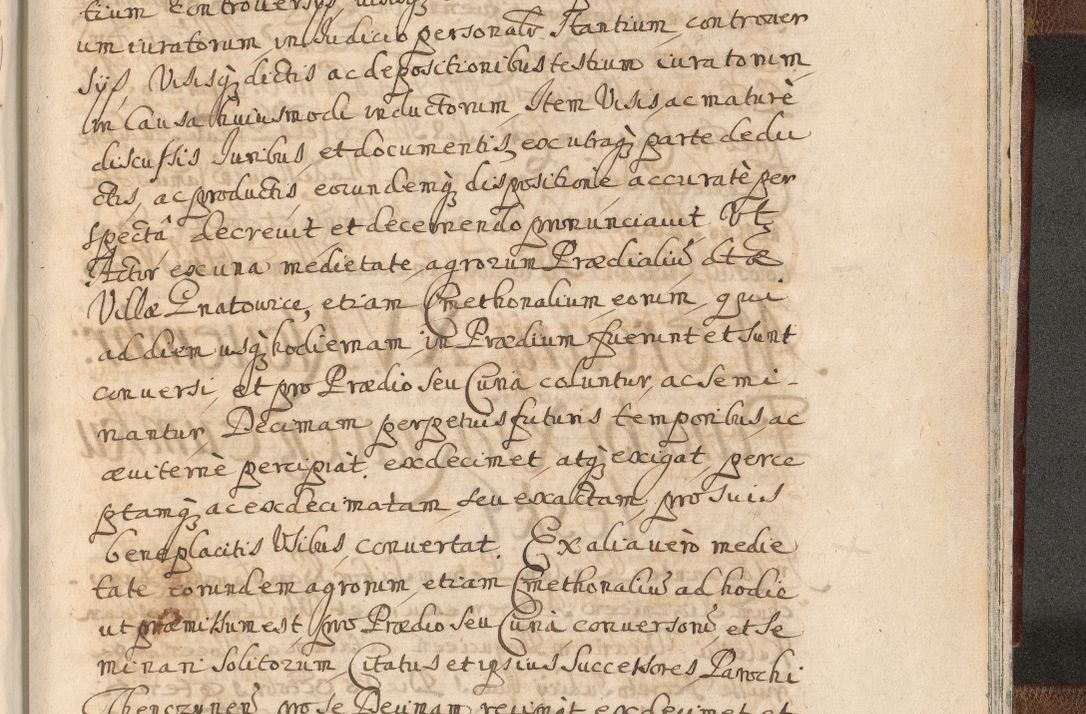 um iuratorum in Judicio personalr Stantium controver
sijs Visisq dictis ac depositionibus testium iuratorum
in Causa huiusmodi inductorum Item Visis ac maturè
discussis Iuribus et documentis ex utraq parte dedu
ctis, ac productis eorundemq dispositione accuratè per
spectâ decrevit et decernendo pronunciavit Ut
Actor ex una medietate agrorum Prædialiu dtæ
Villæ Gnatowice, etiam Cmethonalium eorum qui
ad diem usq hodiernam in Prædium fuerunt et sunt
conversi et pro Prædio seu Curia coluntur ac semi-
nantur Decimam perpetuis futuris temporibus ac
æviternè percipiat exdecimet atq exigat perce
ptamq ac exdecimatam seu exactam pro suis
beneplacitis Usibus convertat. Ex alia vero medie
tate eorundem agrorum etiam Cmethonaliu ad hodie
ut præmissum est pro Prædio seu Curia conversoru et se
minari solitorum Citatus et ipsius Successores Parochi
pro se Decimam